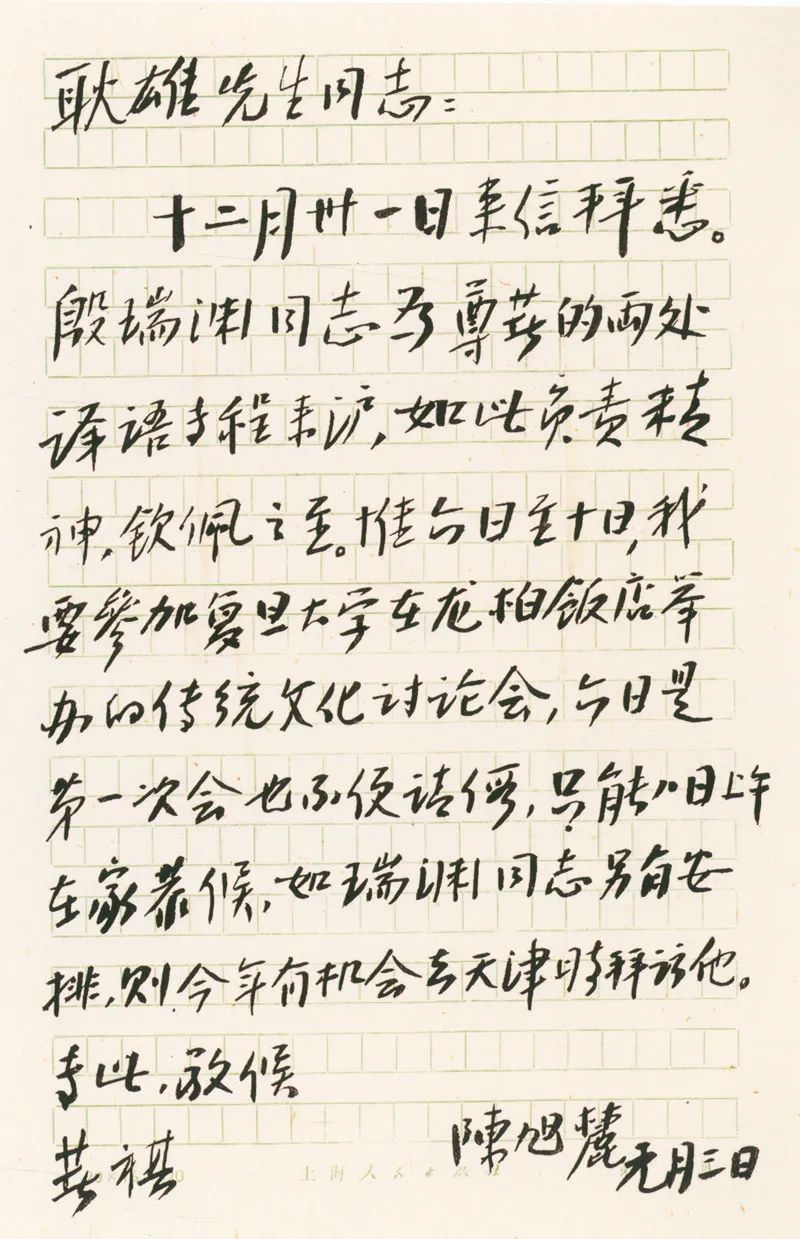 耿雄先生同志：
十二月卅一日来信拜悉。
殷瑞渊同志为尊著的两处
译语专程来沪，如此负责精
神，钦佩之至。惟六日至十日，我
要參加复旦大学在龙柏飯店举
办的传统文化讨论会，六日是
第一次会也不便请假，只能八日上午
在家恭候，如瑞渊同志另有安
排，则今年有机会去天津时拜访他。
专此，敬候
著祺
陳旭麓 元月三日
上海人民出版社